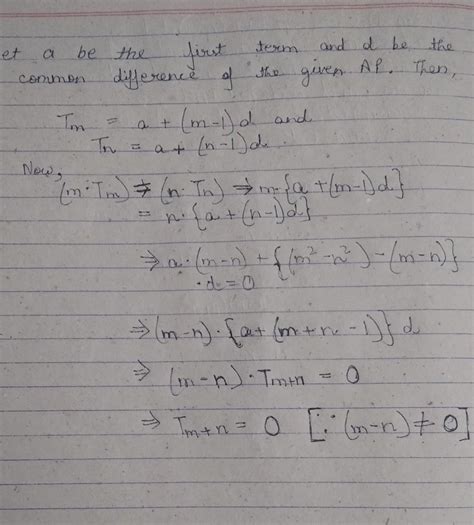 et a be the first term and d be the
common difference of the given AP. Then,
Tm = a + (m-1)d and
Tn = a + (n-1)d.
Now,
(m·Tm) = (n·Tn) ⇒ m·{a+(m-1)d}
= n·{a+(n-1)d}
⇒ a·(m-n) + {(m²-n²)-(m-n)}
·d=0
⇒ (m-n)·{a+(m+n-1)}d
⇒ (m-n)·Tm+n = 0
⇒ Tm+n = 0 [∵(m-n)≠0]